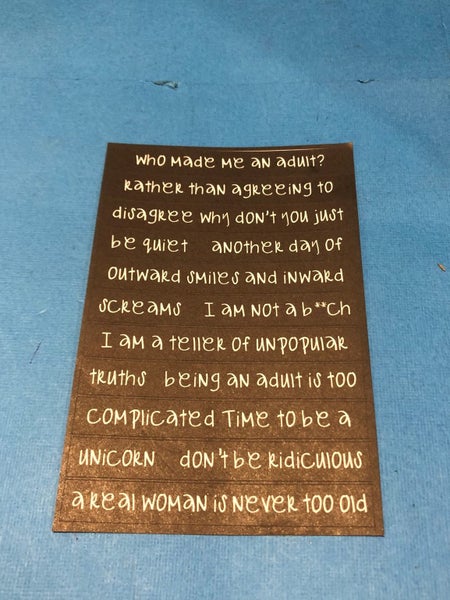 Who made me an adult?
Rather than agreeing to
disagree why don't you just
be quiet another day of
outward smiles and inward
screams I am not a b**ch
I am a teller of unpopular
truths being an adult is too
complicated Time to be a
unicorn don't be ridiculous
a real woman is never too old